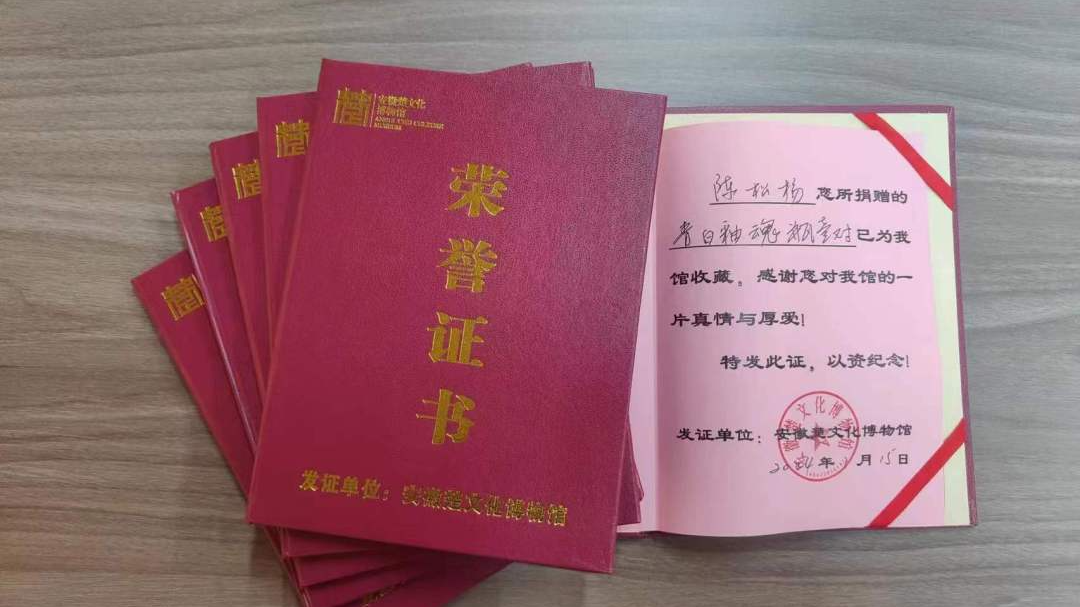 安徽楚文化
博物馆
ANHUI CHU CULTURE
MUSEUM
荣誉证书
发证单位：安徽楚文化博物馆
陈松杨您所捐赠的
青白釉魂瓶壹对已为我
馆收藏，感谢您对我馆的一
片真情与厚爱！
特发此证，以资纪念！
发证单位：安徽楚文化博物馆
年 月15日